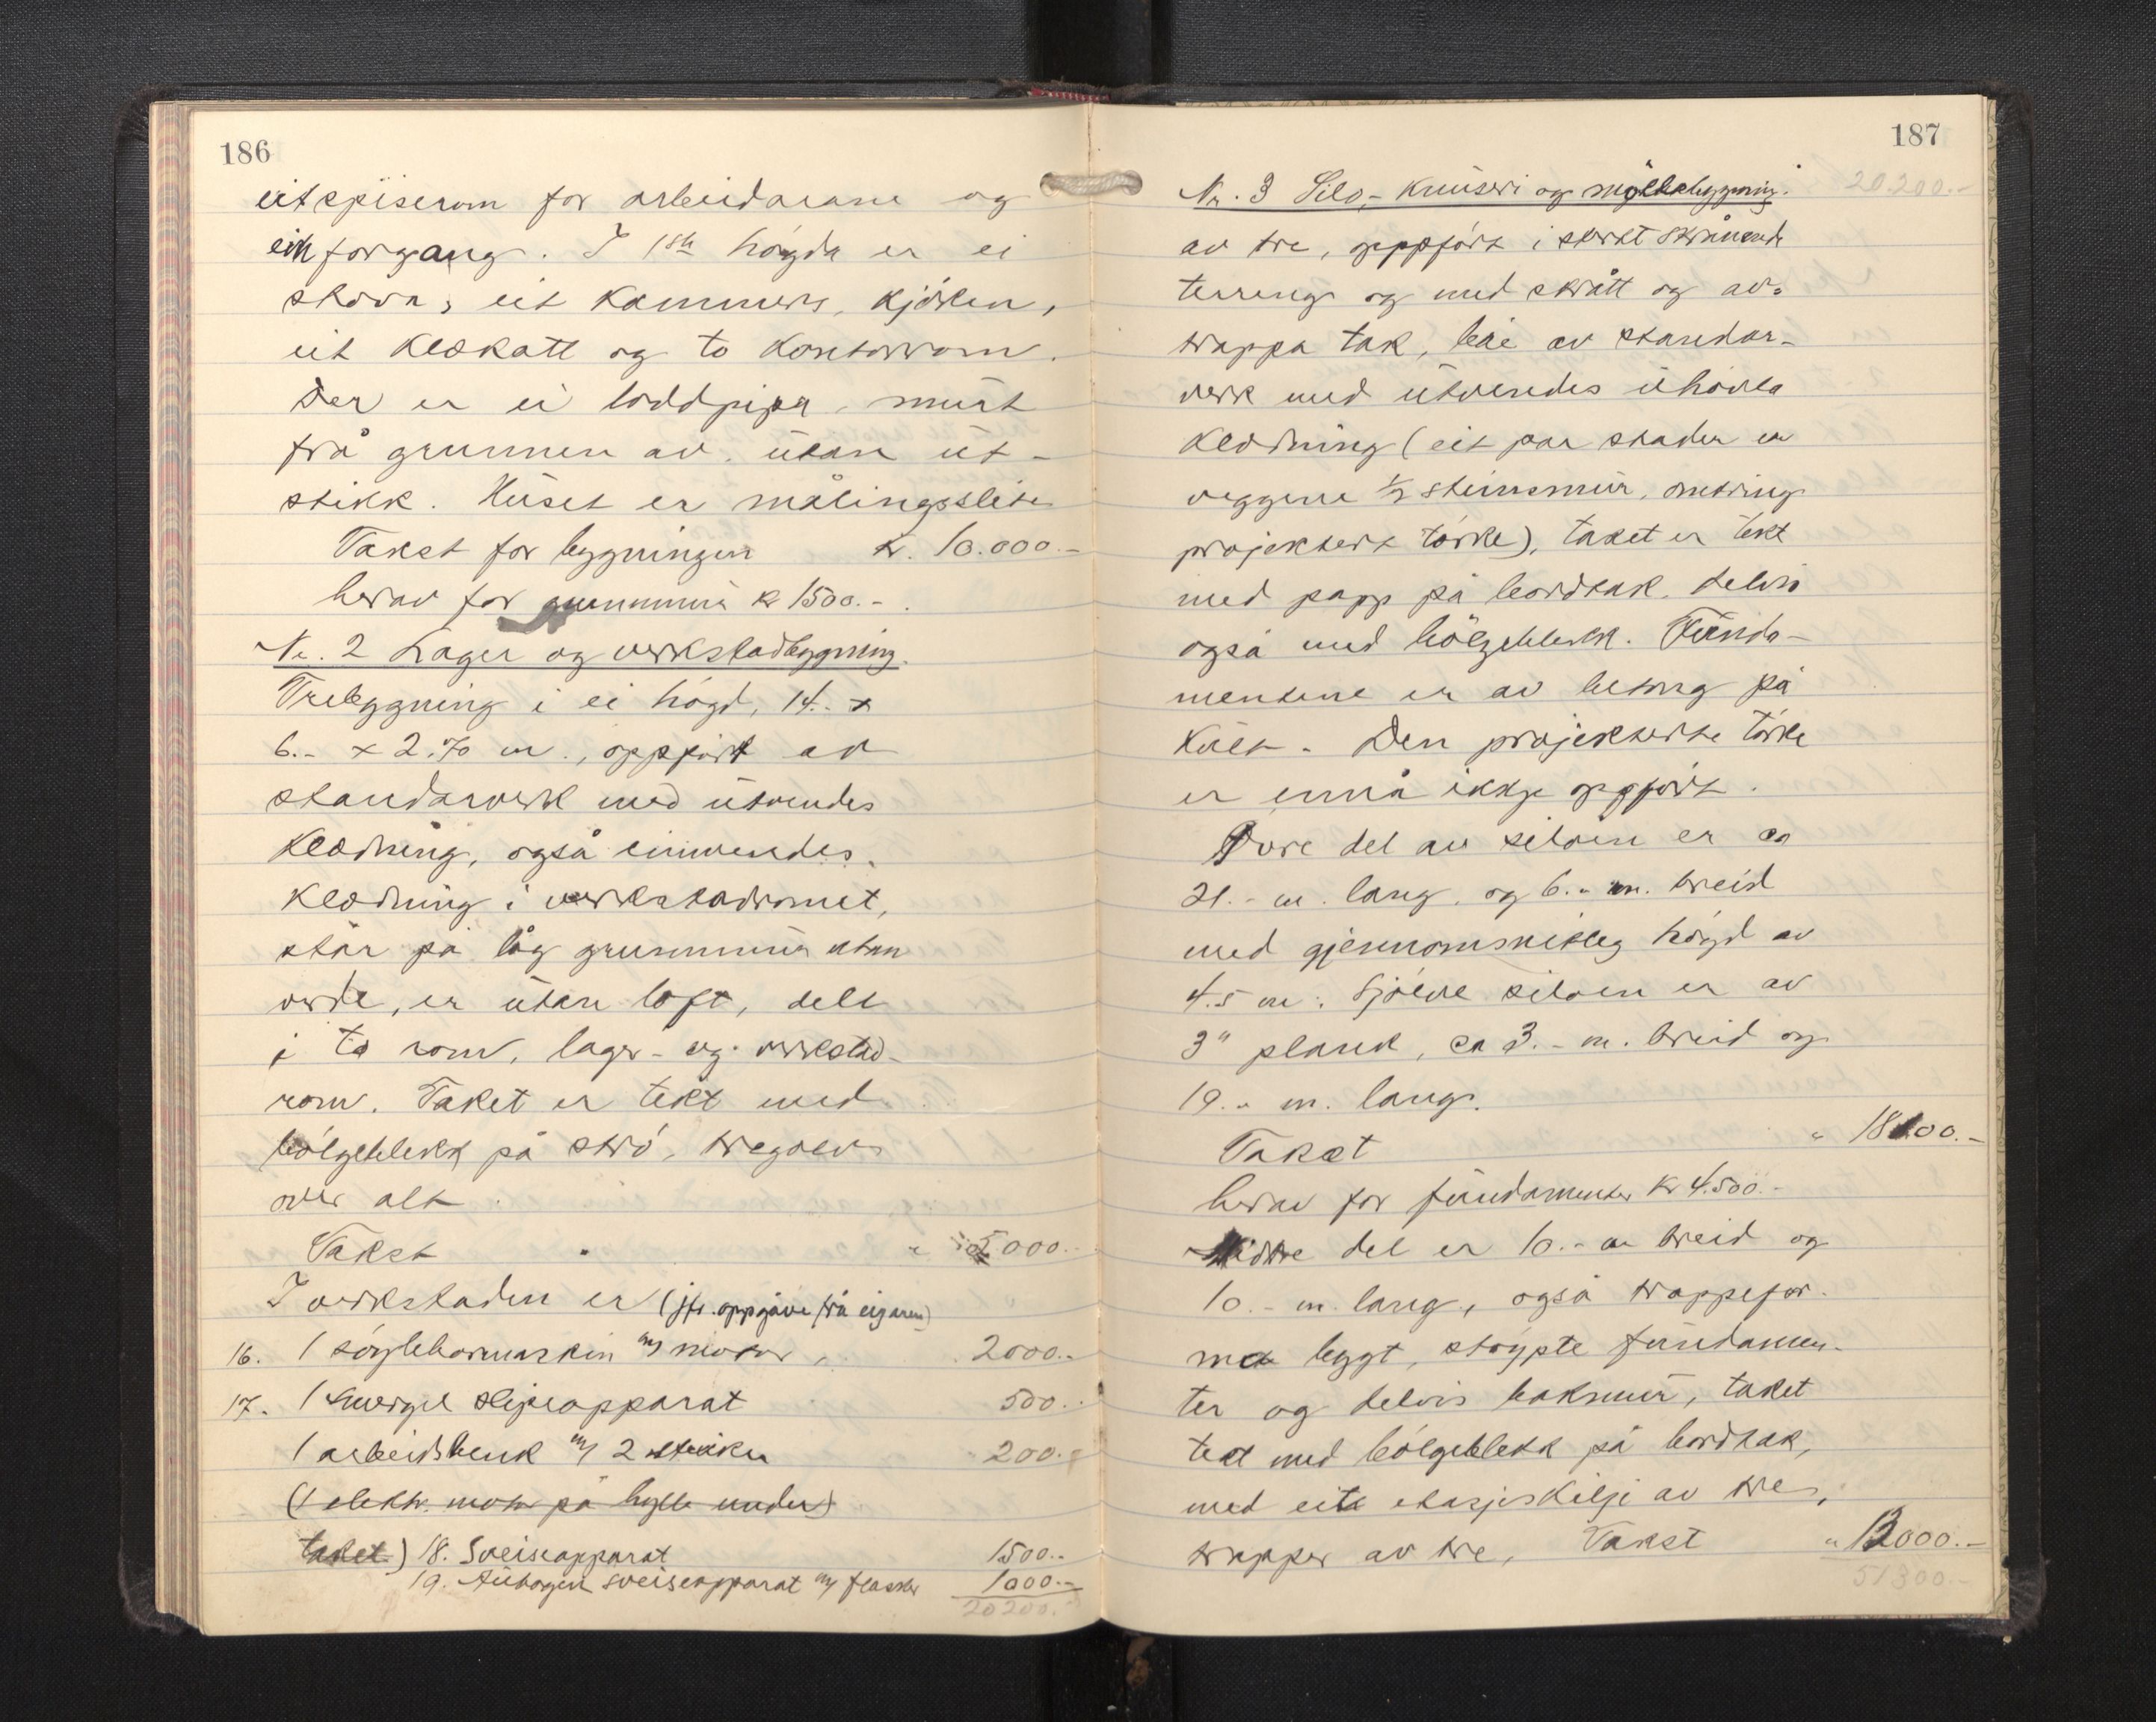 186
eit spiserom for arbeidarane og
ein forgang. I 1ste høgda er ei
stova, eit kammers, kjöken,
eit klosett og to kontorrom.
Der er ei loddpipa, murt
frå grunnen av, utan ut-
stikk. Huset er målingsslite
Takst for bygningen kr. 10.000.-
herav for grunnmur kr 1500.-
Nr. 2 Lager og verkstadbygning.
Trebygning i ei högd, 14.- x
6.- x 2.70 m., oppført av
standarverk med utvendes
klædning, også innvendes
klædning i verkstadromet,
står på låg grunnmur utan
verde, er utan loft, delt
i to rom, lager- og verkstad-
rom. Taket er tekt med
bölgeblekk på strö, tregolv
over alt.
Takst " 5.000.-
I verkstaden er (jfr. oppgåve frå eigaren)
16. 1 söylebormaskin m/ motor, 2000.-
17. 1 Smergel slipeapparat 500.-
1 arbeidsbenk m/ 2 stikker 200.-
(1 elektr. motor på hylle under
taket) 18. Sveiseapparat 1500.-
19. Autogen sveiseapparat m/ flasker 1000.-
20200.-
187
Nr. 3 Silo,- Knuseri og möllebygning. 20.200.-
av tre, oppfört i sterkt skrånende
terreng og med skrått og av-
trappa tak, båe av standar-
verk med utvendes uhövla
klædning (eit par stader er
veggene 1/2 steinsmur, omkring
projektert törke), taket er tekt
med papp på bordtak, delvis
også med bölgeblekk. Funda-
mentene er av betong på
kult. Den projekterte törke
er ennå ikkje oppfört.
Övre del av siloen er ca
21.- m. lang, og 6.- m. breid
med gjennomsnittleg högd av
4.5 m. Sjölve siloen er av
3" plank, ca 3.- m. breid og
19.- m. lang.
Takst " 18100.-
herav for fundamenter kr 4.500.-
Midtre del er 10.- m breid og
10.- m. lang, også trappefor-
ma bygt, støypte fundamen-
ter og delvis bakmur, taket
tekt med bölgeblekk på bordtak,
med eit etasjeskilje av tre,
trapper av tre, Takst " 13000.-
51300.-